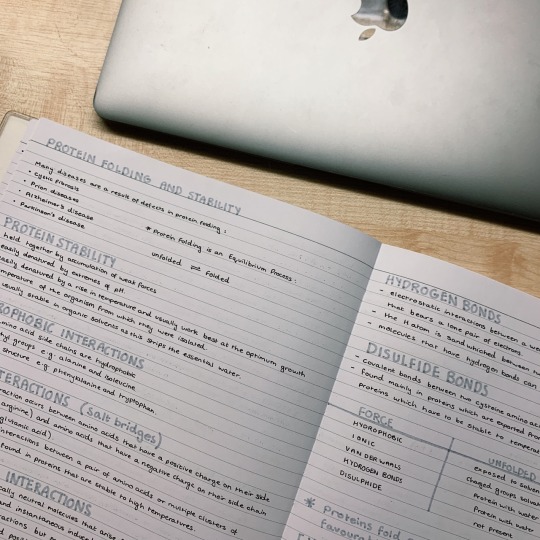 PROTEIN FOLDING AND STABILITY
Many diseases are a result of defects in protein folding :
• Cystic fibrosis
• Prion diseases
• Alzheimer's disease
• Parkinson's disease
* Protein folding is an Equilibrium Process :
unfolded ⇌ folded
PROTEIN STABILITY
held together by accumulation of weak forces
easily denatured by extremes of pH.
easily denatured by a rise in temperature and usually work best at the optimum growth
temperature of the organism from which they were isolated.
usually stable in organic solvents as this strips the essential water.
INTERACTIONS
amino acid side chains are hydrophobic
groups e.g. alanine and isoleucine.
structure e.g. phenylalanine and tryptophan.
INTERACTIONS (salt bridges)
occur between amino acids that have a positive charge on their side
arginine) and amino acids that have a negative charge on their side chain
acid)
interactions between a pair of amino acids or multiple clusters of
Found in proteins that are stable to high temperatures.
INTERACTIONS
neutral molecules that
and instantaneous
HYDROGEN BONDS
- electrostatic interactions between a
that bears a lone pair of electrons.
- the H atom is sandwiched between
- molecules that have hydrogen bonds can
DISULFIDE BONDS
- covalent bonds between two cysteine amino
- found mainly in proteins which are exported from
proteins which have to be stable to
FORCE
HYDROPHOBIC
IONIC
VAN DER WAALS
HYDROGEN BONDS
DISULPHIDE
UNFOLDED
exposed to
charged groups
Protein with water
Protein with water
not present
* Proteins fold